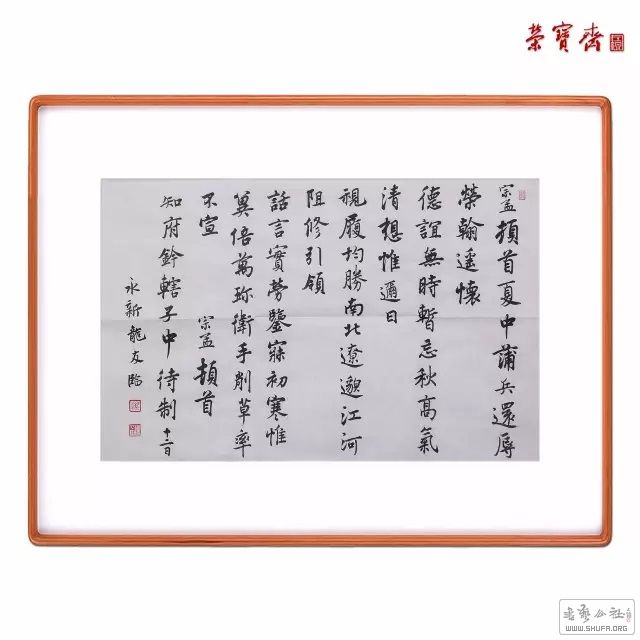 榮寶齋
宗孟頓首夏中蒲兵還辱
榮翰遥懷
德誼無時暫忘秋高氣
清想惟邇日
視履均勝南北遼邈江河
阻修引領
話言實勞鑒寐初寒惟
冀倍萬珎衛手削草率
不宣 宗孟頓首
知府鈐轄子中待制 十一日
永新龍友臨
書藝公社
WWW.SHUFA.ORG